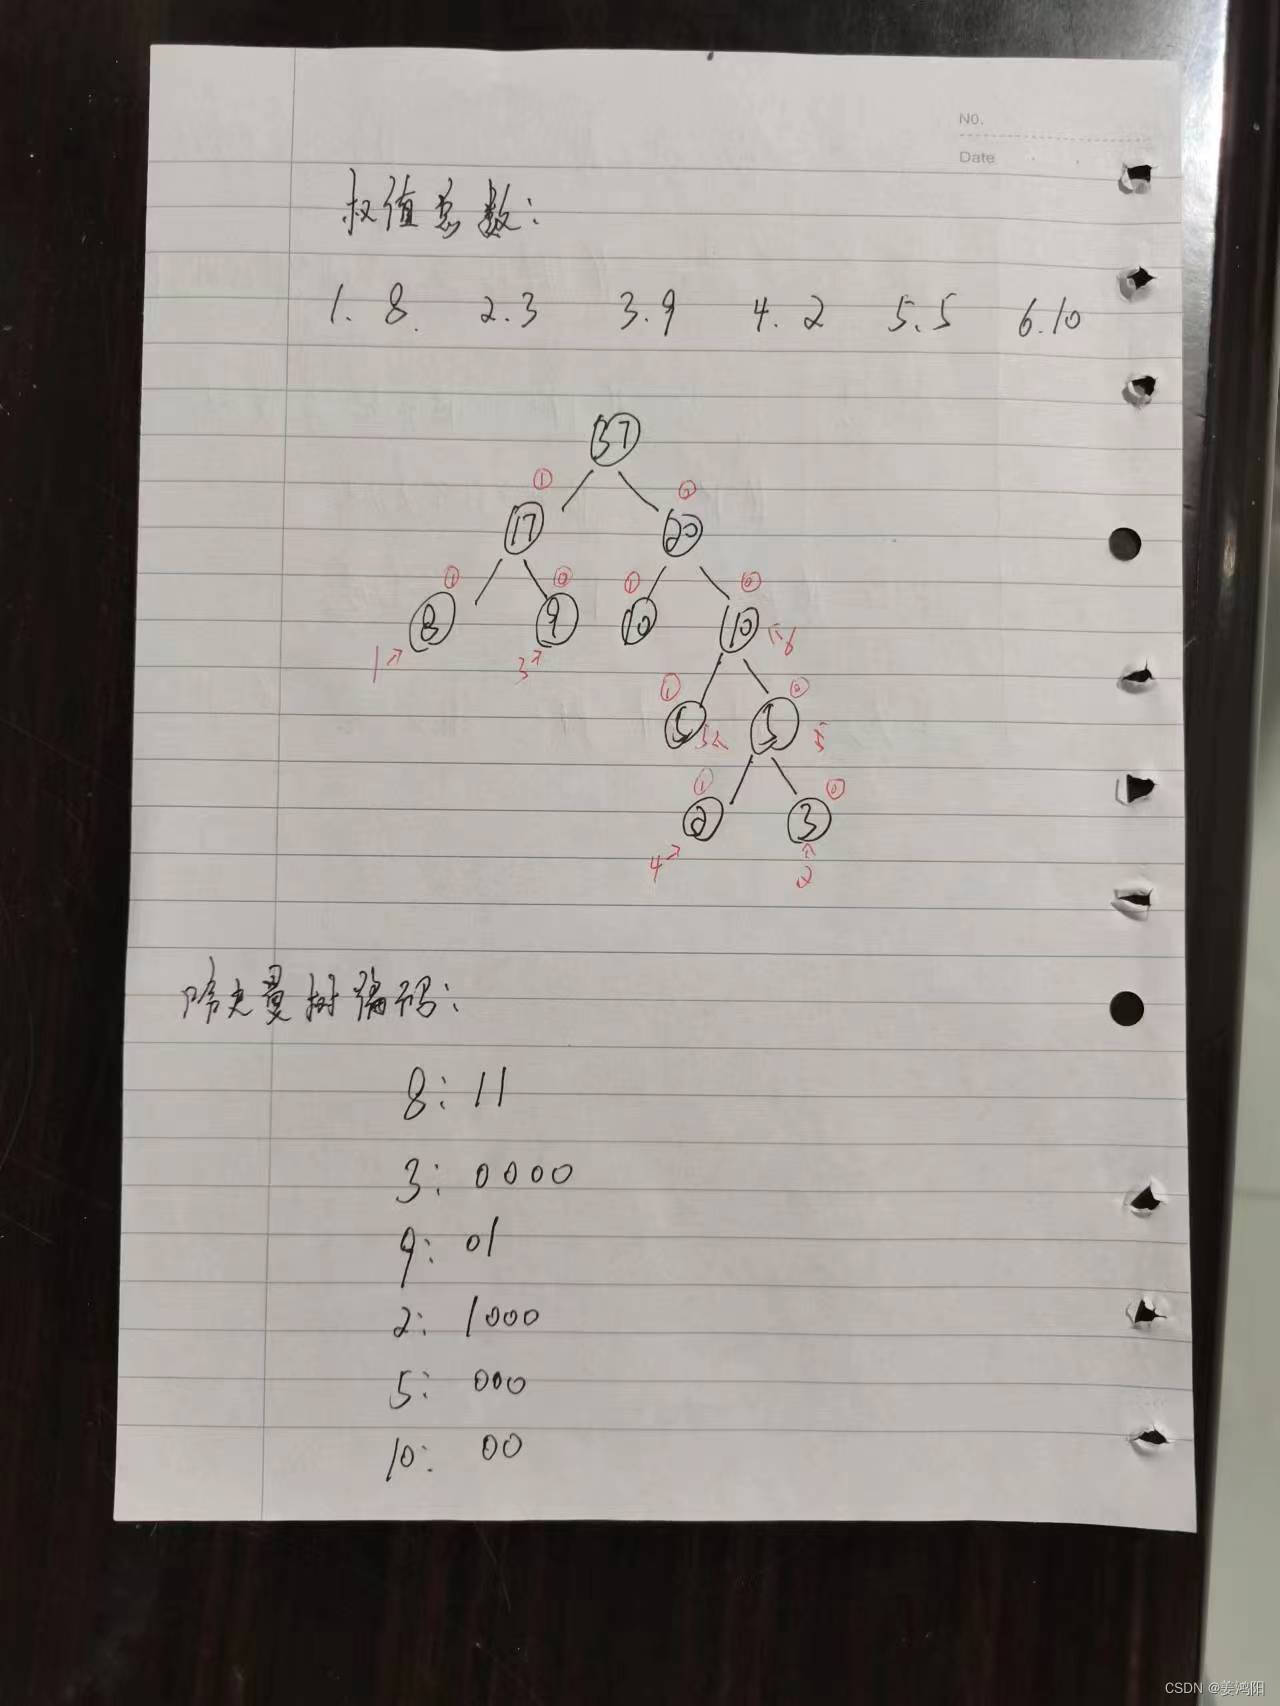 N0.
Date
权值总数：
1. 8. 2.3 3.9 4.2 5.5 6.10
37
① ⓪
17 20
① ⓪ ① ⓪
8 9 10 10
1 3 6
① ⓪
5 5 5
① ⓪
2 3
4 2
哈夫曼树编码：
8: 11
3: 0000
9: 01
2: 1000
5: 000
10: 00
CSDN @姜鸿阳